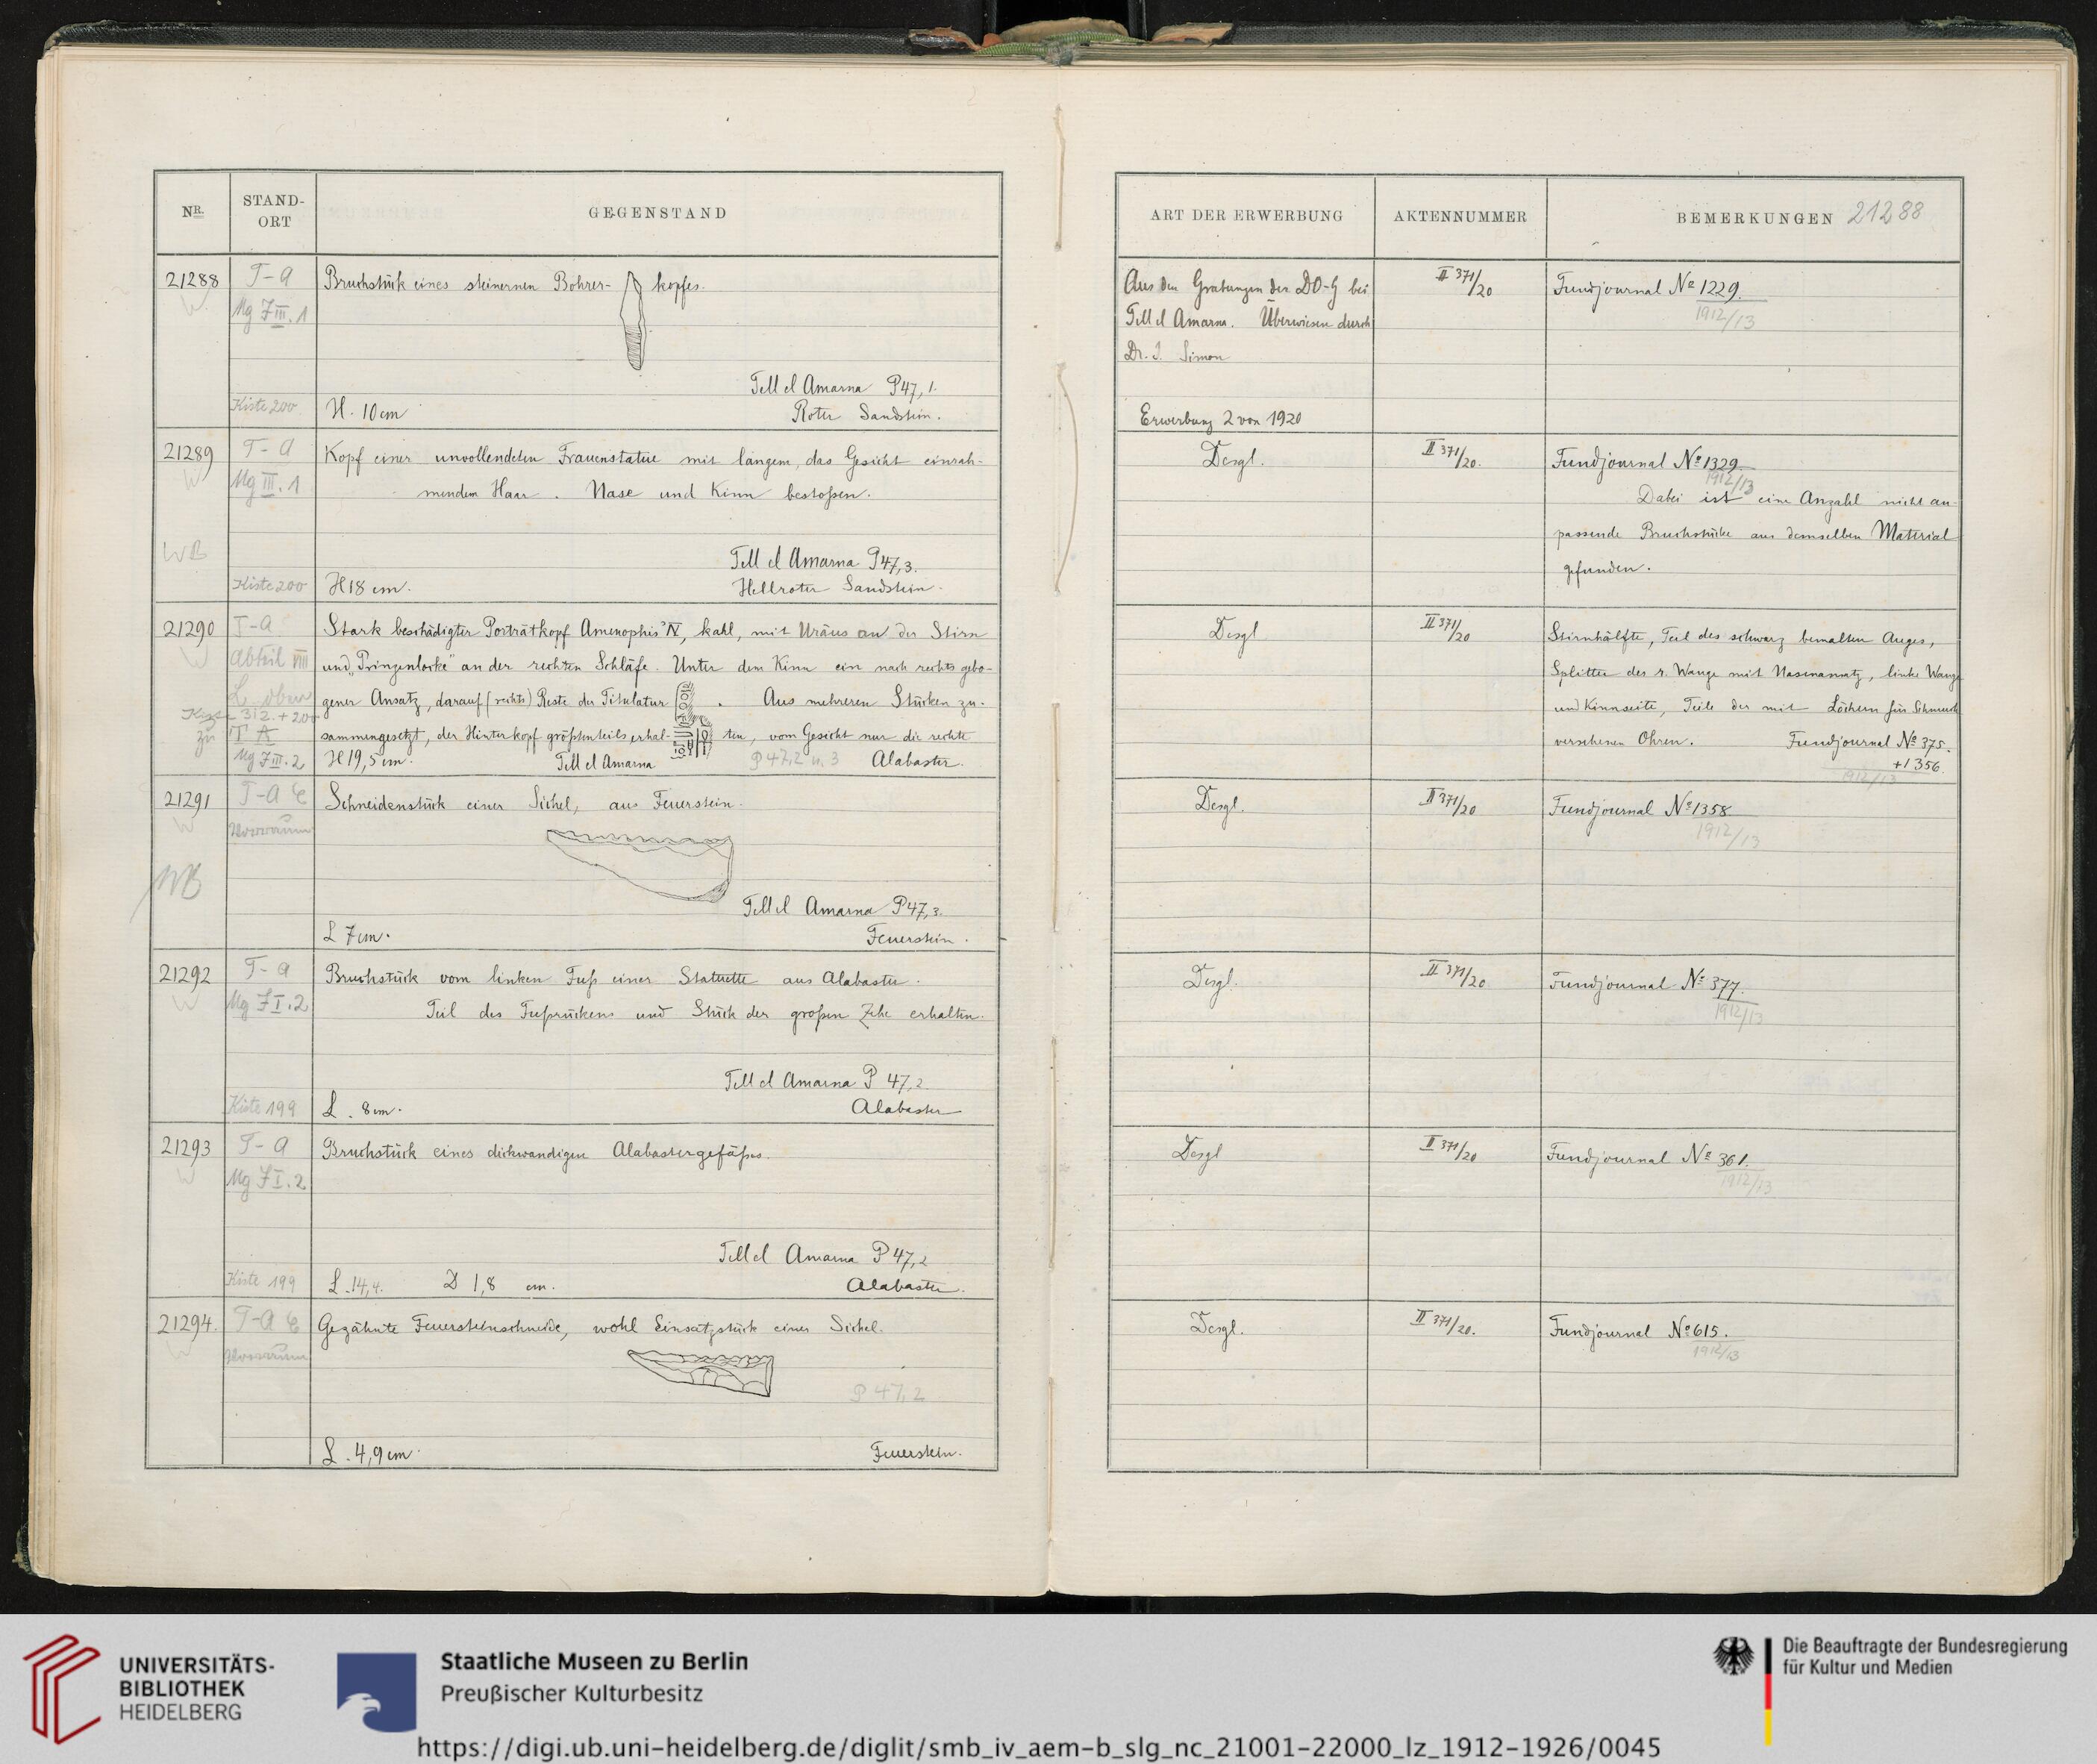 NR.
STAND-
ORT
GEGENSTAND
21288
T-A
Mg FIII.1
Kiste 200
Bruchstück eines steinernen Bohrer- kopfes.
Tell el Amarna P47,1.
H. 10 cm
Roter Sandstein.
21289
W
T-A
Mg III.1
WB
Kiste 200
Kopf einer unvollendeten Frauenstatue mit langem, das Gesicht einrah-
mendem Haar. Nase und Kinn bestoßen.
Tell el Amarna P47,3.
H 18 cm.
Hellroter Sandstein.
21290
W
T-A
Abteil VIII
L. oben
312 + 200
zu T A
Mg FIII.2
Stark beschädigter Porträtkopf Amenophis' IV, kahl, mit Uräus an der Stirn
und „Prinzenlocke" an der rechten Schläfe. Unter dem Kinn ein nach rechts gebo-
gener Ansatz, darauf (rechts) Reste der Titulatur . Aus mehreren Stücken zu-
sammengesetzt, der Hinterkopf größtenteils erhal- ten, vom Gesicht nur die rechte
H 19,5 cm.
Tell el Amarna
P47,2 u. 3
Alabaster.
21291
W
T-A
WB
Schneidenstück einer Sichel, aus Feuerstein.
Tell el Amarna P47,3.
L 7 cm.
Feuerstein.
21292
W
T-A
Mg FI.2
Kiste 199
Bruchstück vom linken Fuß einer Statuette aus Alabaster.
Teil des Fußrückens und Stück der großen Zehe erhalten.
Tell el Amarna P 47,2.
L. 8 cm.
Alabaster
21293
W
T-A
Mg FI.2
Kiste 199
Bruchstück eines dickwandigen Alabastergefäßes.
Tell el Amarna P 47,2
L. 14,4. D 1,8 cm.
Alabaster.
21294.
W
T-A
Gezähnte Feuersteinschneide, wohl Einsatzstück einer Sichel.
P 47,2
L. 4,9 cm.
Feuerstein.
ART DER ERWERBUNG
AKTENNUMMER
BEMERKUNGEN
21288
Aus den Grabungen der DO-G bei
Tell el Amarna. Überwiesen durch
Dr. J. Simon
Erwerbung 2 von 1920
II 371/20
Fundjournal No 1229.
1912/13
Desgl.
II 371/20.
Fundjournal No 1329.
1912/13
Dabei ist eine Anzahl nicht an-
passende Bruchstücke aus demselben Material
gefunden.
Desgl
II 371/20
Stirnhälfte, Teil des schwarz bemalten Auges,
Splitter der r. Wange mit Nasenansatz, linke Wange
und Kinnseite, Teile der mit Löchern für Schmuck
versehenen Ohren. Fundjournal No 375.
+1356.
1912/13
Desgl.
II 371/20
Fundjournal No 1358
1912/13
Desgl.
II 371/20
Fundjournal No 377.
1912/13
Desgl
II 371/20
Fundjournal No 361.
1912/13
Desgl.
II 371/20.
Fundjournal No 615.
1912/13
UNIVERSITÄTS-
BIBLIOTHEK
HEIDELBERG
Staatliche Museen zu Berlin
Preußischer Kulturbesitz
Die Beauftragte der Bundesregierung
für Kultur und Medien
https://digi.ub.uni-heidelberg.de/diglit/smb_iv_aem-b_slg_nc_21001-22000_lz_1912-1926/0045